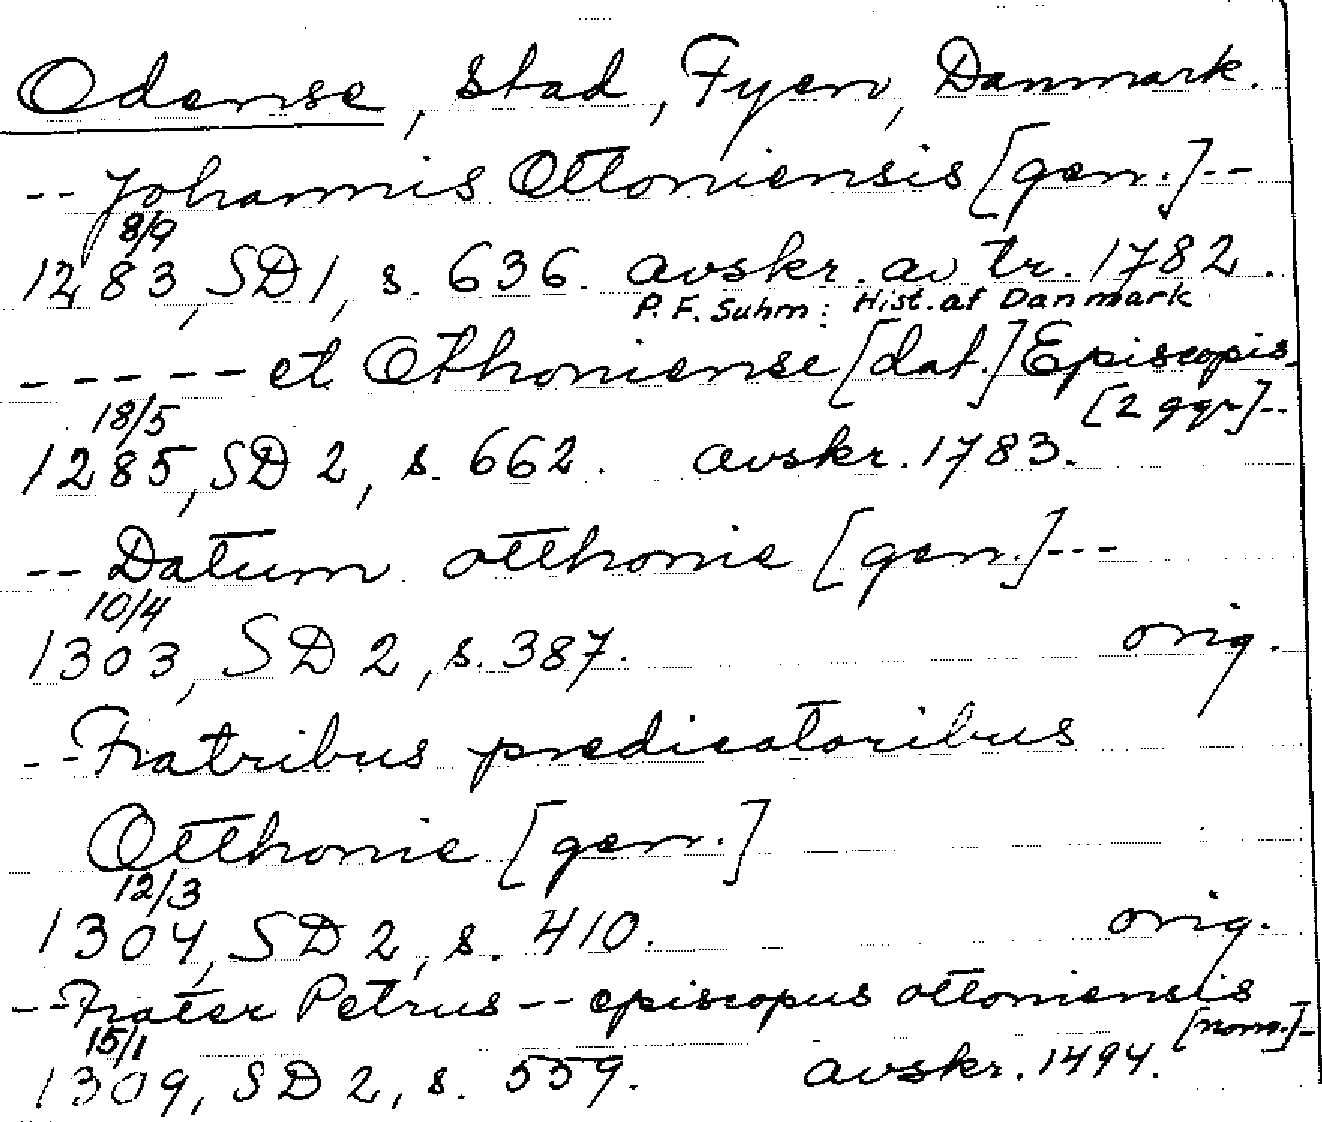 Odense, stad, Fyen, Danmark.
-- Johannis Ottoniensis [gen.] --
8/9
1283, SD 1, s. 636. avskr. av tr. 1782.
P. F. Suhm: Hist. af Danmark
- - - - - et Othoniense [dat.] Episcopis
18/5 [2 ggr] --
1285, SD 2, s. 662. avskr. 1783.
-- Datum otthonie [gen.] ---
10/4
1303, SD 2, s. 387. orig.
-- Fratribus predicatoribus
Otthonie [gen.]
12/3
1304, SD 2, s. 410. orig.
-- Frater Petrus -- episcopus ottoniensis
15/1 [nom.] -
1309, SD 2, s. 559. avskr. 1494.